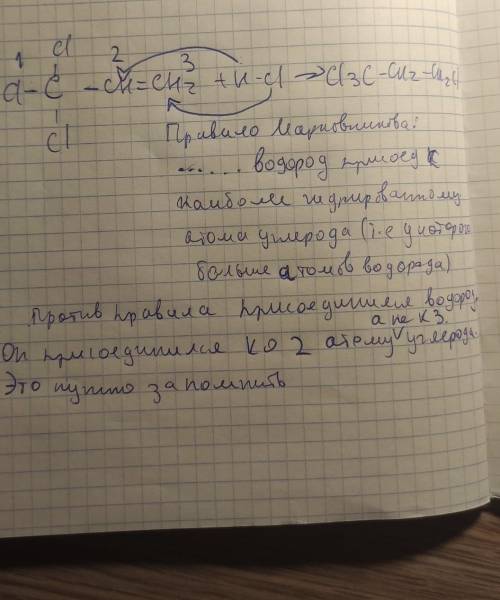 Cl
1 2 3
Cl–C–CH=CH2 + H–Cl → Cl3C–CH2–CH2Cl
Cl
Правило Марковникова:
...... водород присоед к
наиболее гидрированному
атома углерода (т.е у которого
больше атомов водорода)
Против правила присоединился водород,
а не к 3.
Он присоединился ко 2 атому углерода.
Это нужно запомнить